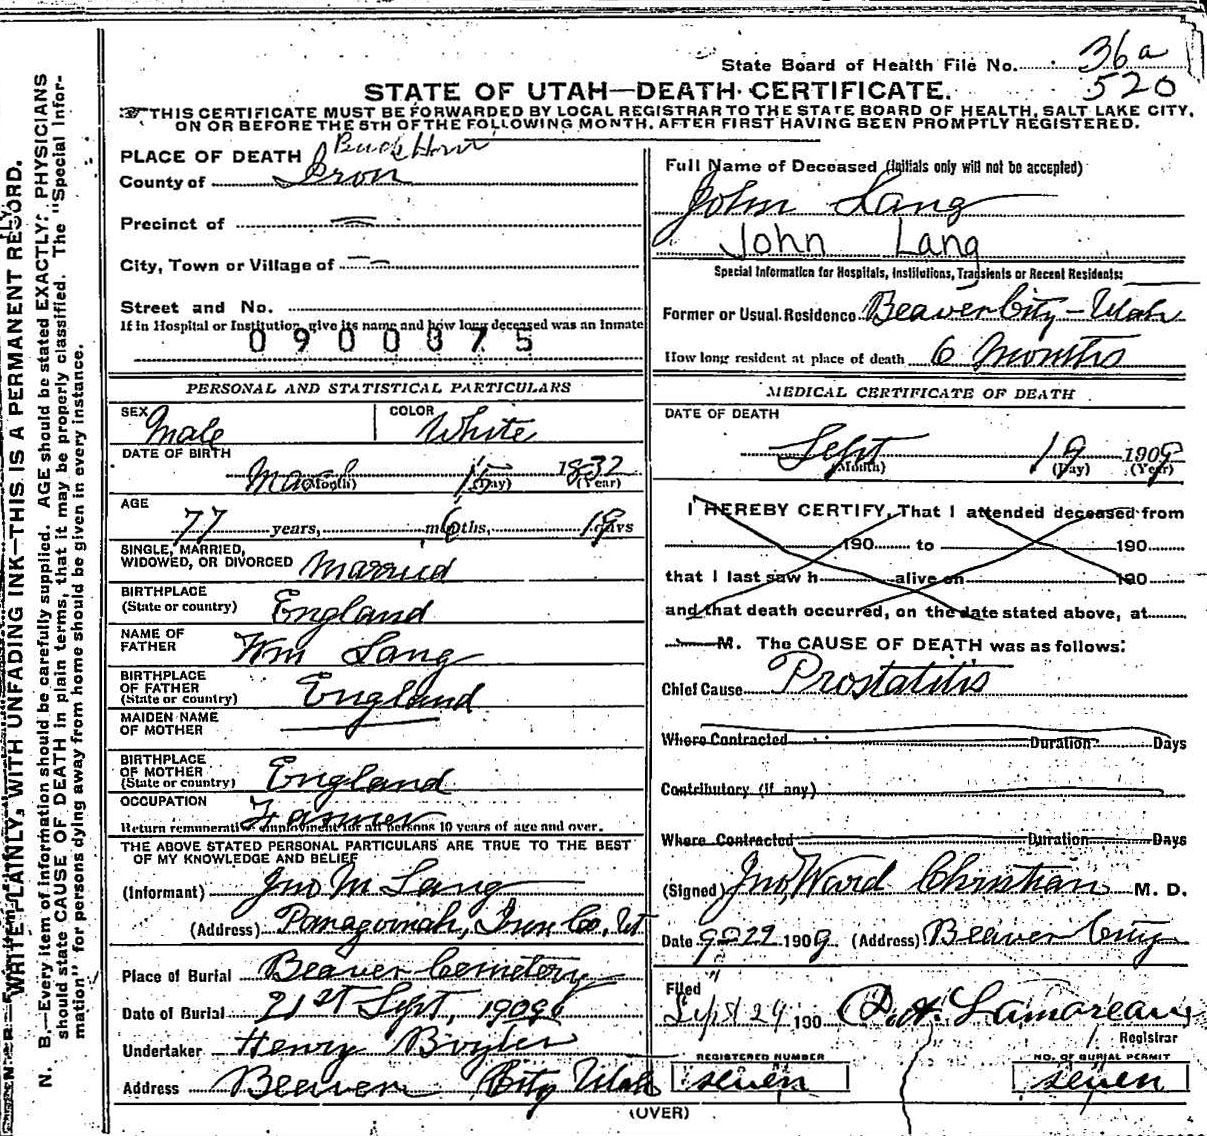 State Board of Health File No. 36a
520
STATE OF UTAH—DEATH CERTIFICATE.
THIS CERTIFICATE MUST BE FORWARDED BY LOCAL REGISTRAR TO THE STATE BOARD OF HEALTH, SALT LAKE CITY,
ON OR BEFORE THE 5TH OF THE FOLLOWING MONTH, AFTER FIRST HAVING BEEN PROMPTLY REGISTERED.
N. B.—WRITE PLAINLY, WITH UNFADING INK—THIS IS A PERMANENT RECORD.
N. B.—Every item of information should be carefully supplied. AGE should be stated EXACTLY; PHYSICIANS
should state CAUSE OF DEATH in plain terms, that it may be properly classified. The "Special Infor-
mation" for persons dying away from home should be given in every instance.
PLACE OF DEATH Buckhorn
County of Iron
Precinct of
City, Town or Village of
Street and No.
If in Hospital or Institution, give its name and how long deceased was an Inmate
0900375
PERSONAL AND STATISTICAL PARTICULARS
SEX Male COLOR White
DATE OF BIRTH
March 15 1832
(Month) (Day) (Year)
AGE
77 years, 6 months, 19 days
SINGLE, MARRIED,
WIDOWED, OR DIVORCED Married
BIRTHPLACE
(State or country) England
NAME OF
FATHER Wm Lang
BIRTHPLACE
OF FATHER
(State or country) England
MAIDEN NAME
OF MOTHER
BIRTHPLACE
OF MOTHER
(State or country) England
OCCUPATION Farmer
Return remunerative employment for all persons 10 years of age and over.
THE ABOVE STATED PERSONAL PARTICULARS ARE TRUE TO THE BEST
OF MY KNOWLEDGE AND BELIEF
(Informant) Jno M Lang
(Address) Paragoonah, Iron Co. Ut
Place of Burial Beaver Cemetery
Date of Burial 21st Sept, 1909
Undertaker Henry
Address Beaver City Utah
Full Name of Deceased (initials only will not be accepted)
John Lang
John Lang
Special Information for Hospitals, Institutions, Transients or Recent Residents:
Former or Usual Residence Beaver City - Utah
How long resident at place of death 6 Months
MEDICAL CERTIFICATE OF DEATH
DATE OF DEATH
Sept 19 1909
(Month) (Day) (Year)
I HEREBY CERTIFY, That I attended deceased from
190 to 190
that I last saw h alive on 190
and that death occurred, on the date stated above, at
M. The CAUSE OF DEATH was as follows:
Chief Cause Prostatitis
Where Contracted Duration Days
Contributory (if any)
Where Contracted Duration Days
(Signed) Jno, Ward Christian M. D.
Date 9-22 1909 (Address) Beaver City
Filed
Sept 24 190 Lamoreaux
Registrar
REGISTERED NUMBER
seven
NO. OF BURIAL PERMIT
seven
(OVER)